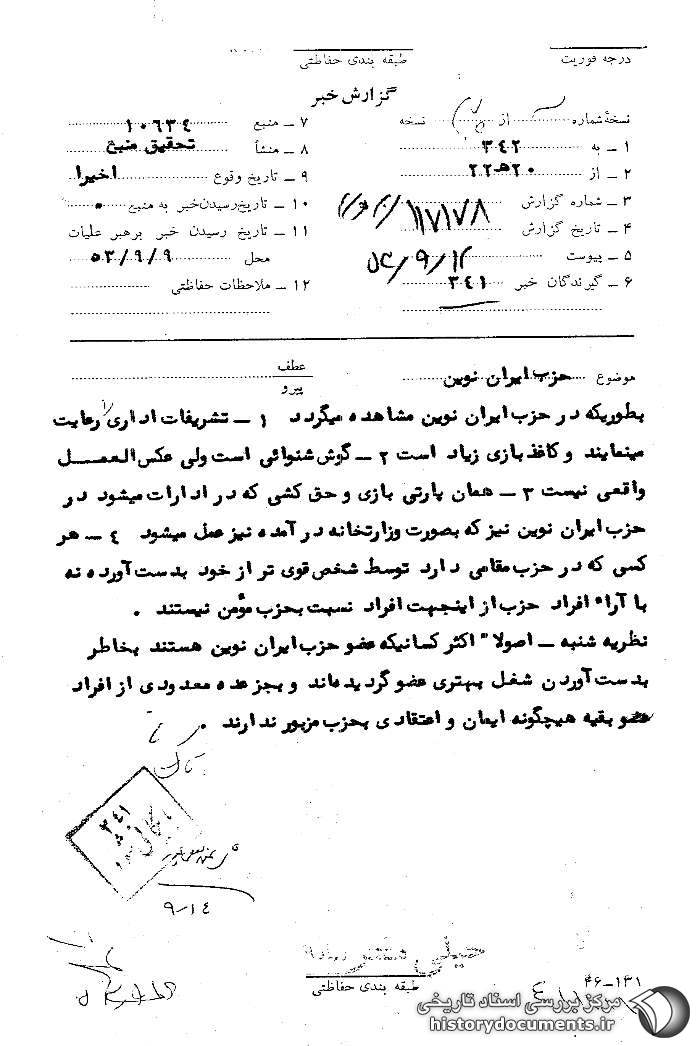 درجه فوریت
طبقه بندی حفاظتی
گزارش خبر
نسخهٔ شماره از نسخه
۱ ـ به ۳٤۲
۲ ـ از ۲۰هـ۲۲
۳ ـ شماره گزارش ۱۱۷۱۷۸
۴ ـ تاریخ گزارش
۵ ـ پیوست
۶ ـ گیرندگان خبر ۳٤۱
۷ ـ منبع ۱۰۶۳٤
۸ ـ منشأ تحقیق منبع
۹ ـ تاریخ وقوع اخیرا
۱۰ ـ تاریخ رسیدن خبر به منبع ۰
۱۱ ـ تاریخ رسیدن خبر برهبر عملیات
محل ۵۳/۹/۹
۱۲ ـ ملاحظات حفاظتی
موضوع حزب ایران نوین
عطف
پیرو
بطوریکه در حزب ایران نوین مشاهده میگردد ۱ ـ تشریفات اداری را رعایت
مینمایند و کاغذ بازی زیاد است ۲ ـ گوش شنوائی است ولی عکس العمل
واقعی نیست ۳ ـ همان پارتی بازی و حق کشی که در ادارات میشود در
حزب ایران نوین نیز که بصورت وزارتخانه در آمده نیز عمل میشود ٤ ـ هر
کسی که در حزب مقامی دارد توسط شخص قوی تر از خود بدست آورده نه
با آراء افراد حزب از اینجهت افراد نسبت بحزب مؤمن نیستند .
نظریه شنبه ـ اصولا" اکثر کسانیکه عضو حزب ایران نوین هستند بخاطر
بدست آوردن شغل بهتری عضو گردیده‌اند و بجز عده معدودی از افراد
عضو بقیه هیچگونه ایمان و اعتقادی بحزب مزبور ندارند .
۳٤۱
۹ـ۱٤
طبقه بندی حفاظتی
۴۶-۱۳۱
مرکز بررسی اسناد تاریخی
historydocuments.ir